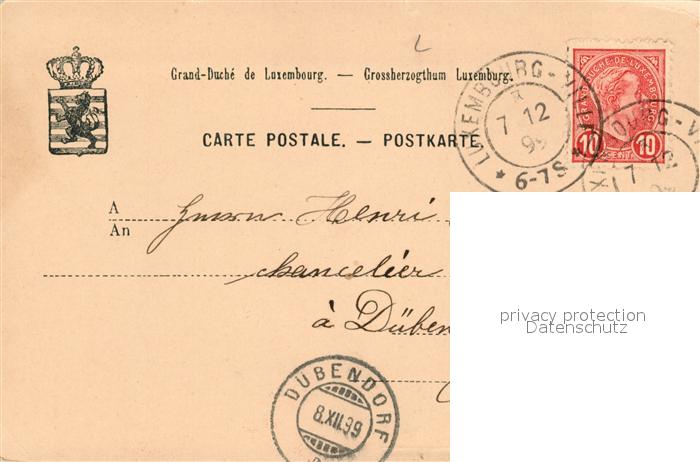 Grand-Duché de Luxembourg. — Grossherzogthum Luxemburg.
CARTE POSTALE. — POSTKARTE.
LUXEMBOURG-VI
7 12
99
6-7S
GRAND-DUCHÉ-DE-LUXEMBOURG
10 CENT. 10
OURG-V
7 12
A
An
Herrn Henri
chancelier
à Düben
privacy protection
Datenschutz
DÜBENDORF
8.XII.99